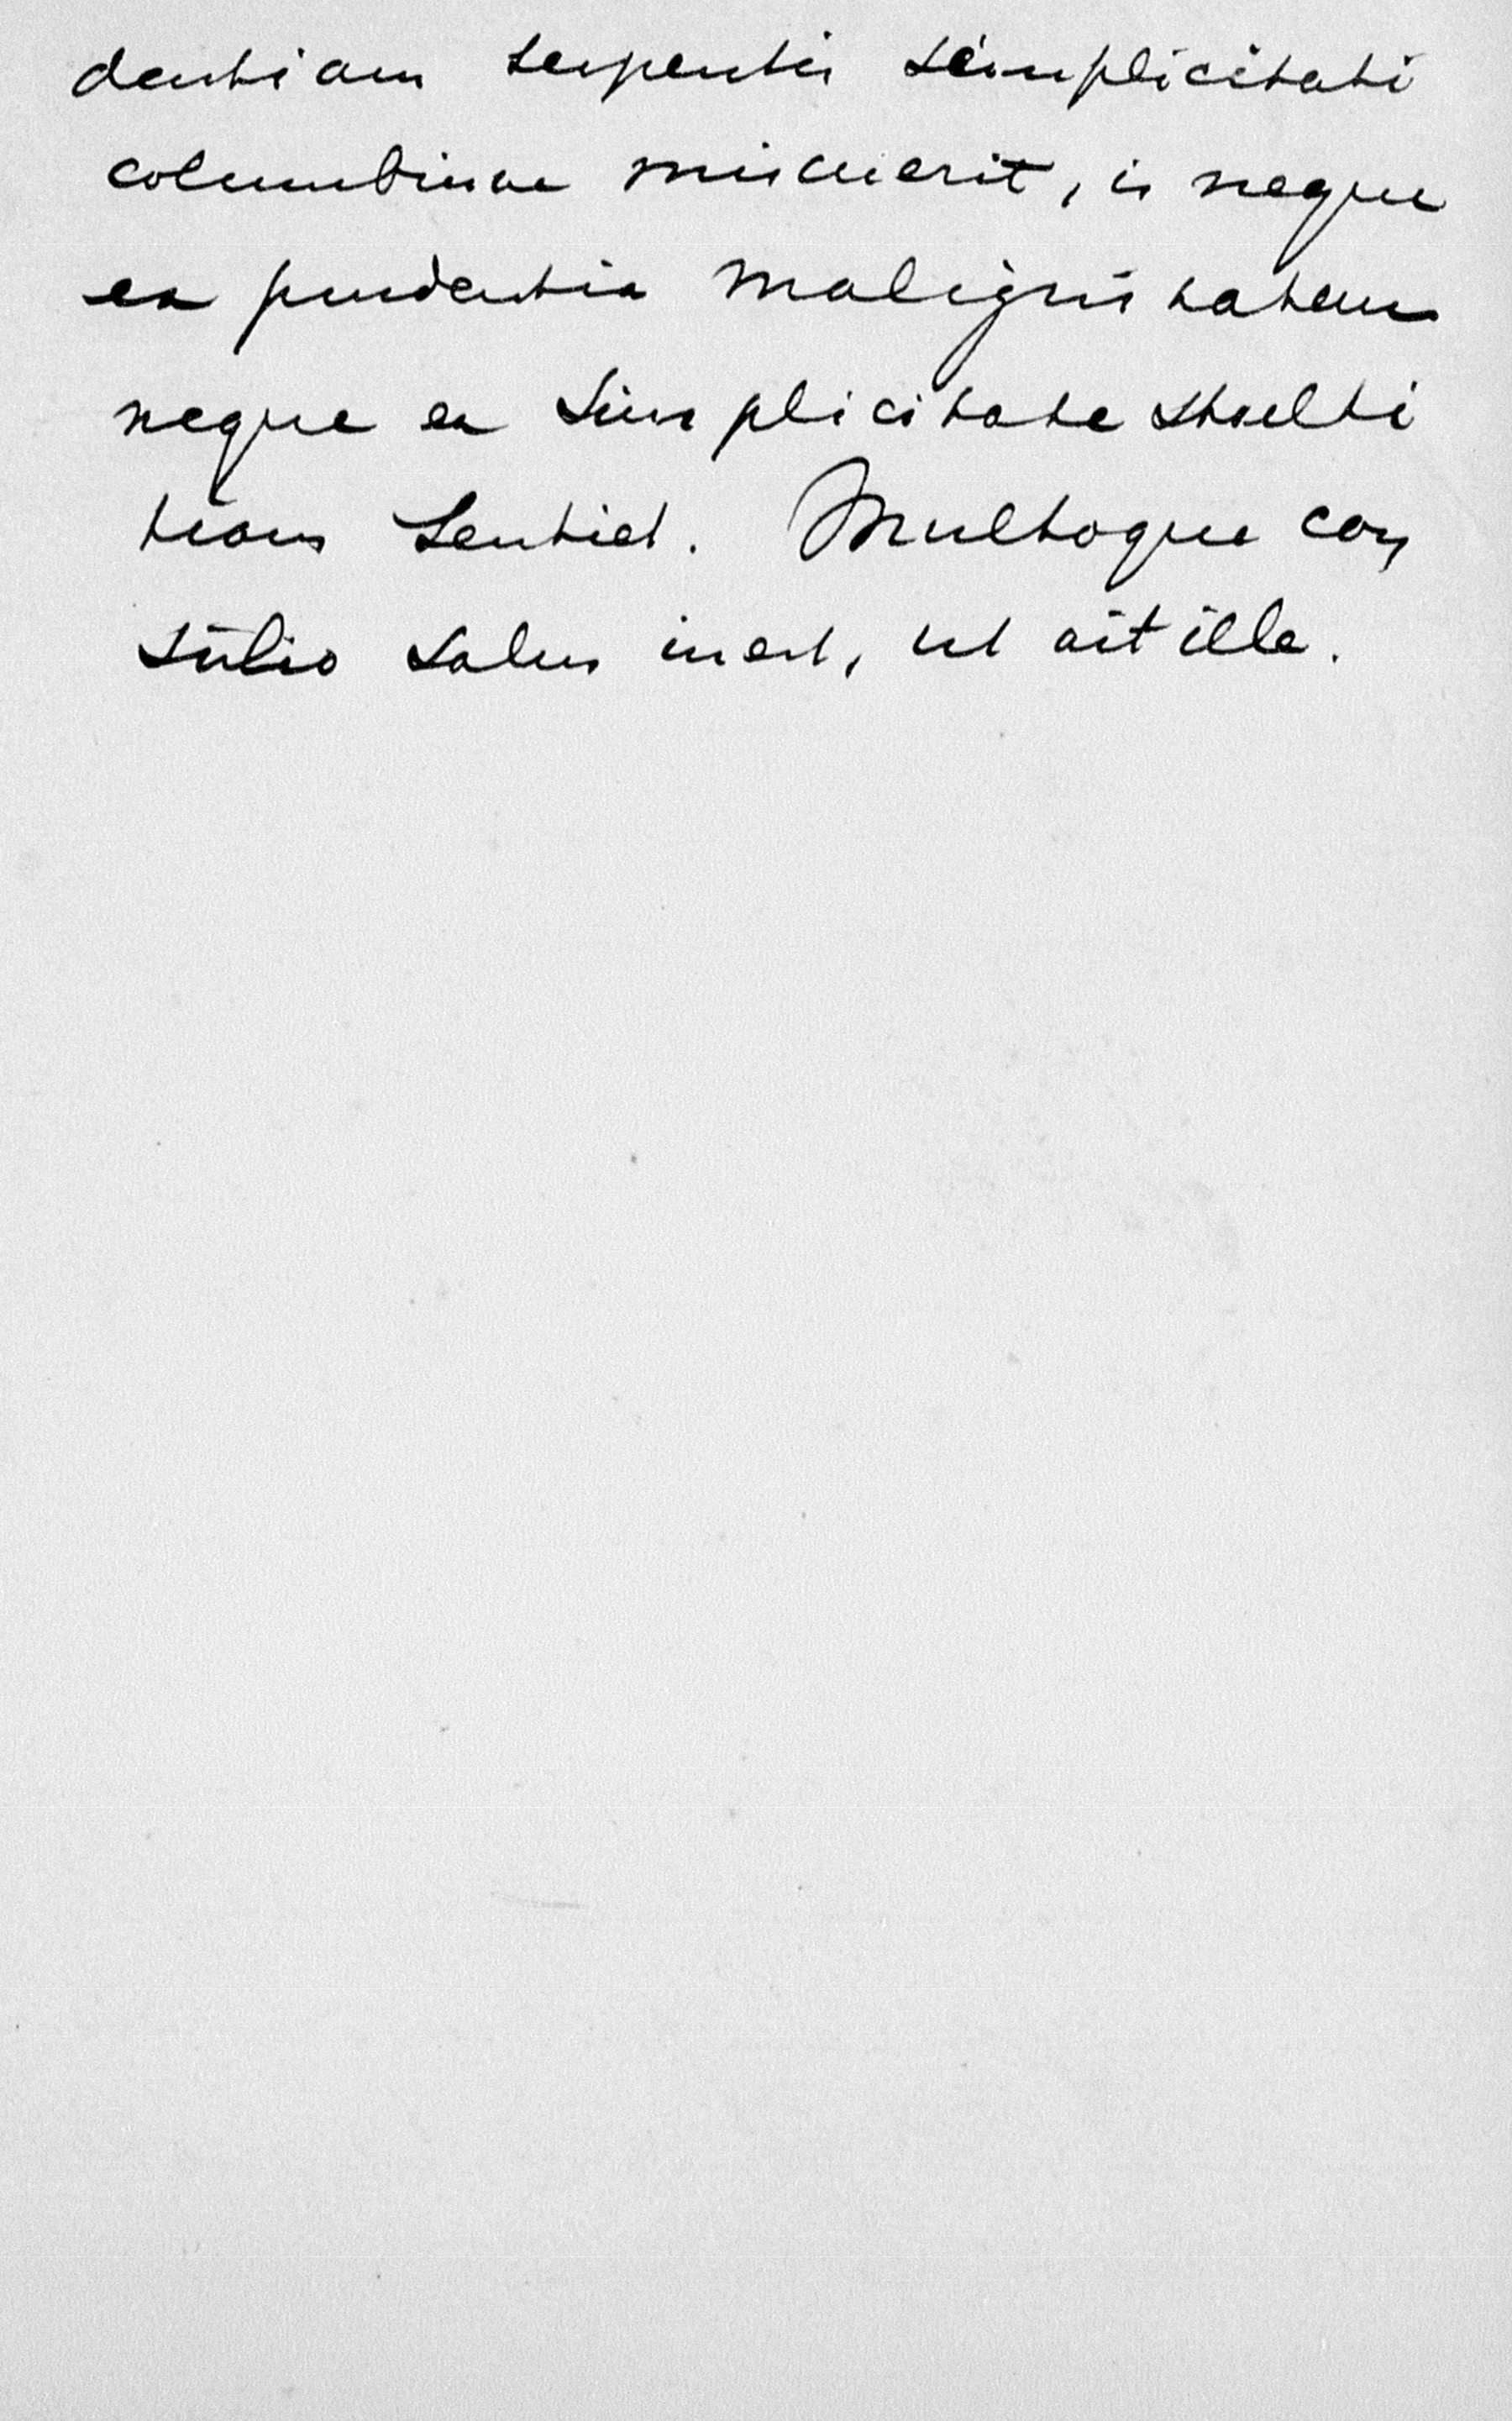 dentiam serpentis simplicitati
columbinae miscuerit, is neque
ex prudentia malignitatem
neque ex simplicitate stulti
tiam sentiet. Multoque con
silio salus inest, ut ait ille.